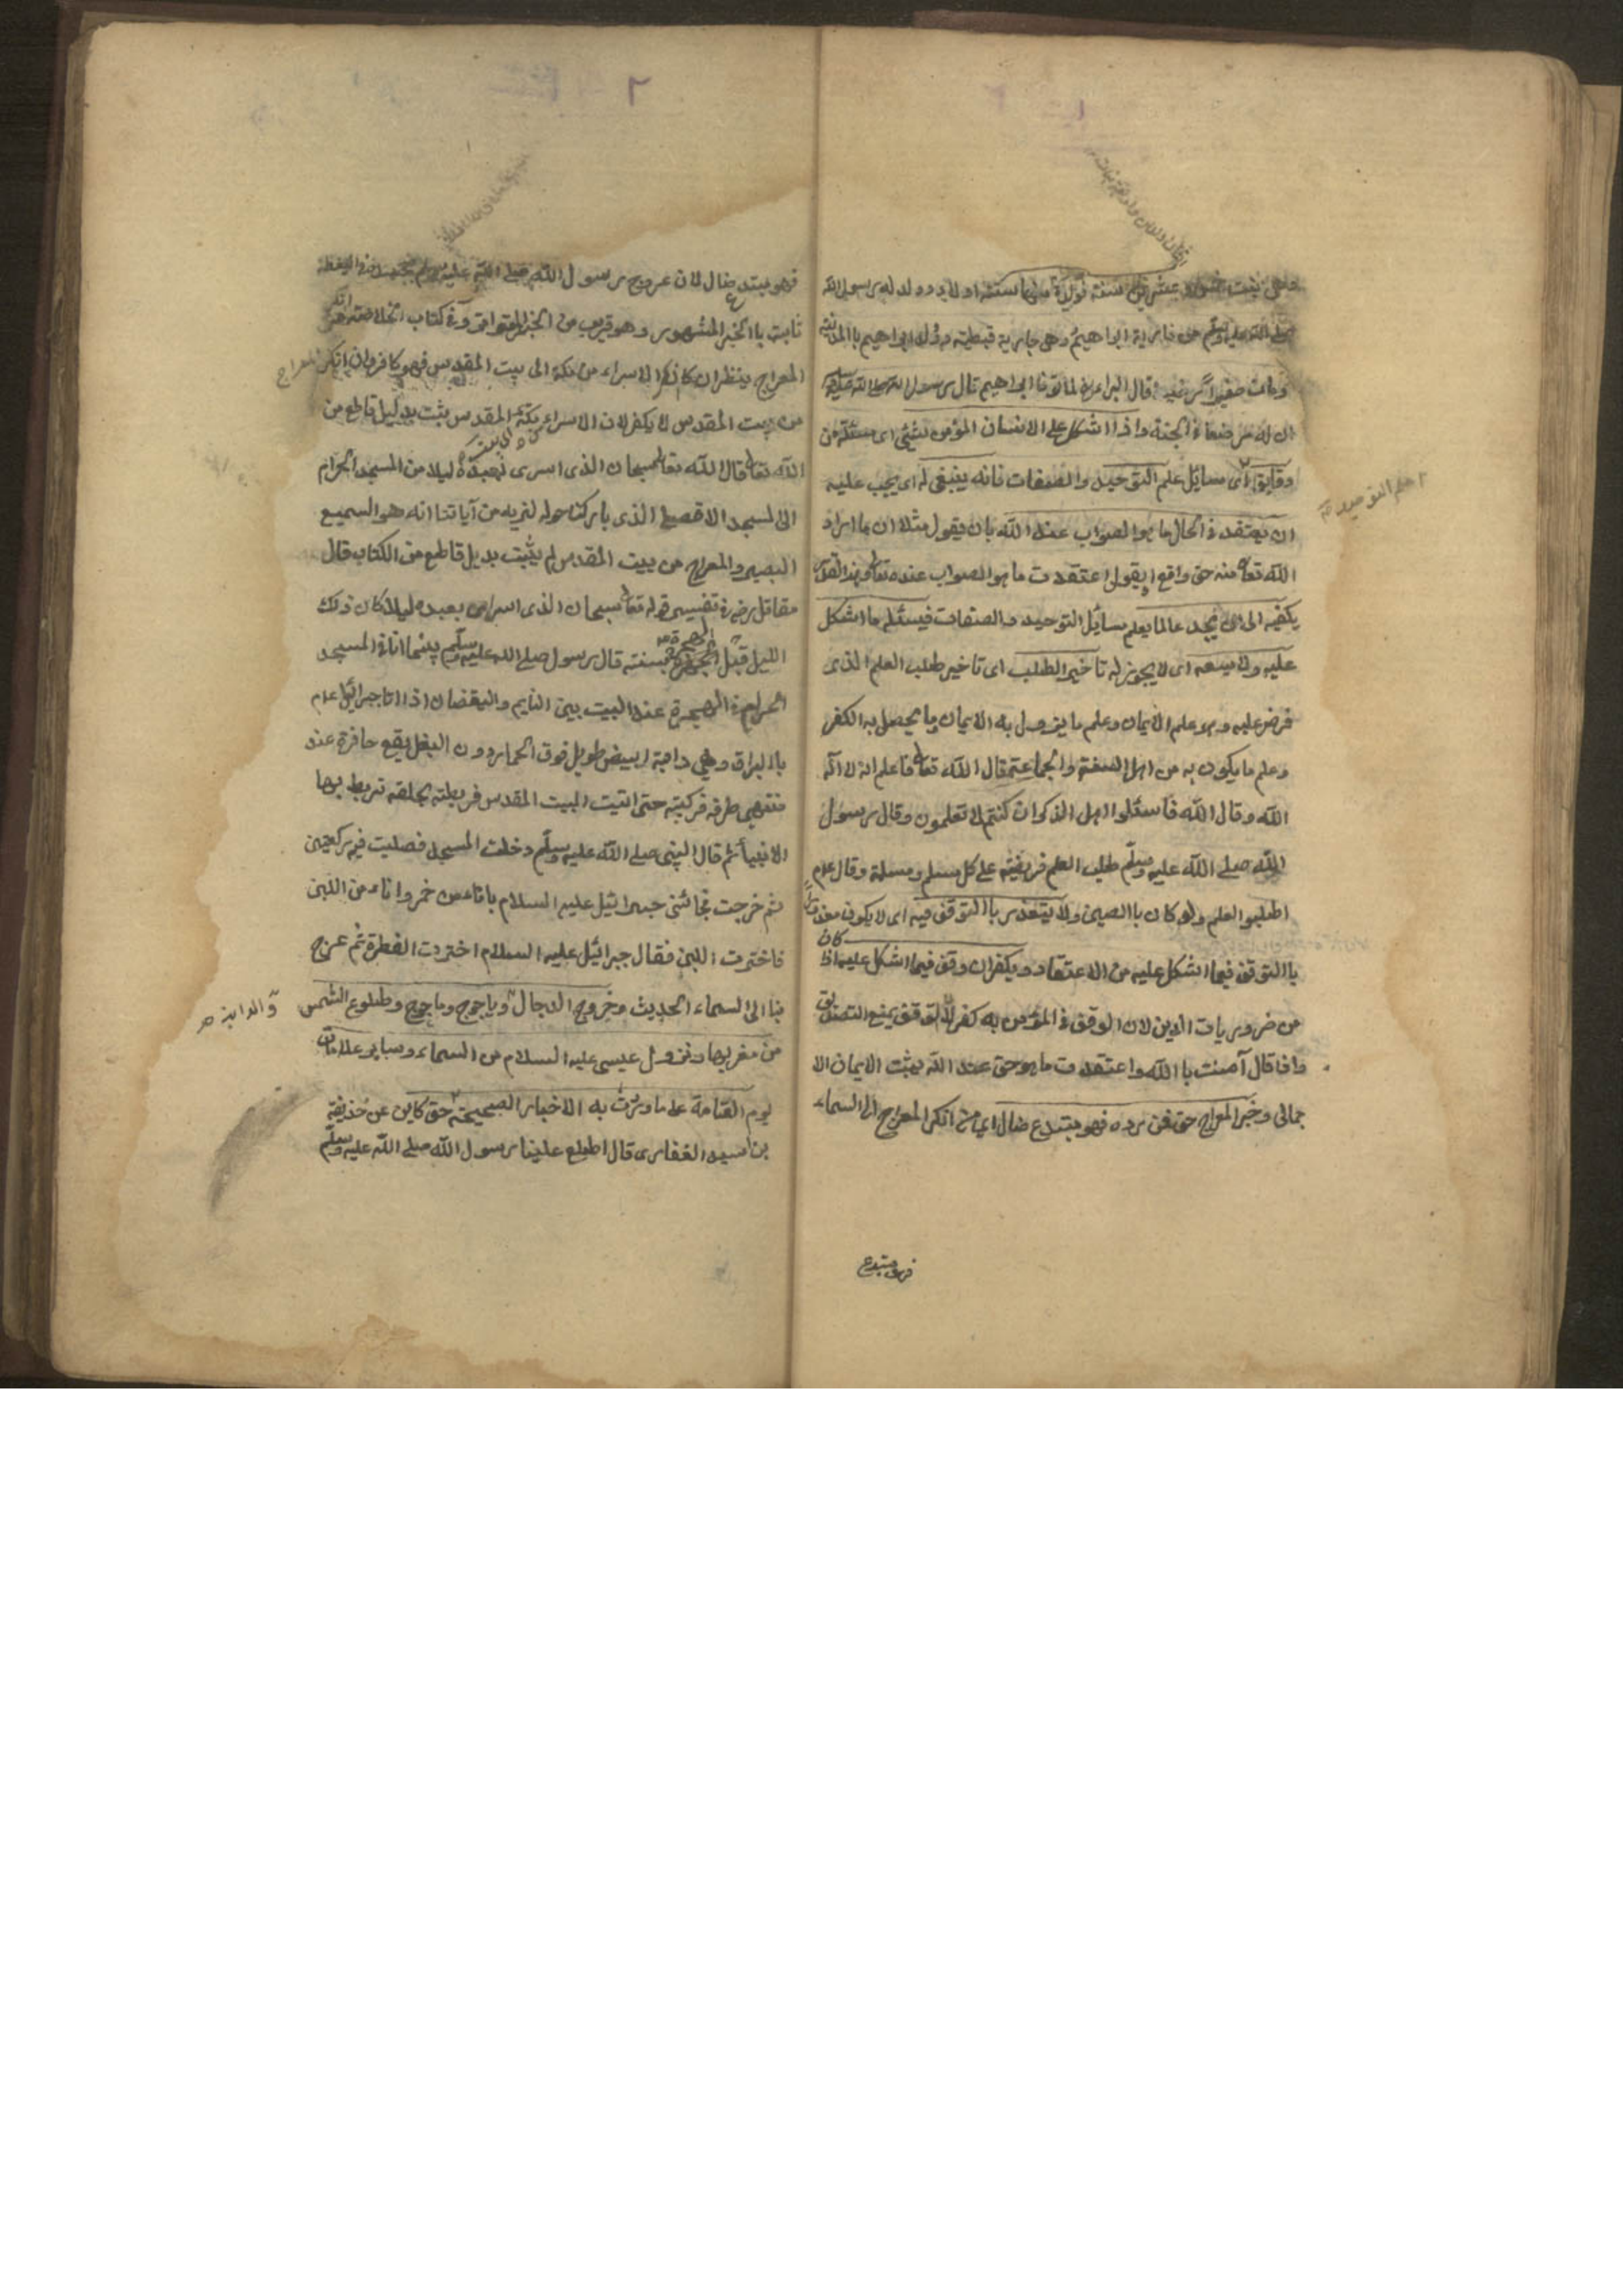 وهي بنت عشرين سنة تولدة منها ستة اولاد وولد له رسول الله
صلى الله عليه وسلم من مارية ابراهيم وهي جارية قبطية ولد ابراهيم باالمدينة
ومات صغيرا رضيعا قال البراء لما توفا ابراهيم قال رسول الله صلى الله عليه
ان له مرضعا في الجنة واذا اشكل على الانسان المؤمن شئ اى مسئلة من
دقايق اى مسايل علم التوحيد والصفات فانه ينبغى له اى يجب عليه
ان يعتقد في الحال ما هو الصواب عند الله بان يقول مثلا ان ما اراد
الله تعالى منه حق واقع او يقول اعتقدت ما هو الصواب عنده تعالى وهذا القدر
يكفيه الى ان يجد عالما يعلم مسايل التوحيد والصفات فيسئله ما اشكل
عليه ولا يسعه اى لا يجوز له تاخير الطلب اى تاخير طلب العلم الذى
فرض عليه وهو علم الايمان وعلم ما يزول به الايمان وما يحصل به الكفر
وعلم ما يكون به من اهل السنة والجماعة قال الله تعالى فاعلم انه لا اله
الله وقال الله فاسئلوا اهل الذكر ان كنتم لا تعلمون وقال رسول
الله صلى الله عليه وسلم طلب العلم فريضة على كل مسلم ومسلمة وقال عم
اطلبوا العلم ولو كان باالصين ولا يتعذر باالتوقف فيه اى لا يكون معذورا
باالتوقف فيما اشكل عليه من الاعتقاد ويكفر ان وقف فيما اشكل عليه اذا كان
من ضروريات الدين لان الوقف في المؤمن به كفر لان التوقف يمنع التصديق
واذا قال آمنت باالله واعتقدت ما هو حق عند الله يثبت الايمان الا
جمالى وخبر المعراج حق فمن رده فهو مبتدع ضال اى من انكر المعراج الى السماء
فهو مبتدع
علم التوحيد
فهو مبتدع ضال لان عروج رسول الله صلى الله عليه وسلم بجسده في اليقظة
ثابت باالخبر المشهور وهو قريب من الخبر المتواتر وفي كتاب الخلاصة من انكر
المعراج ينظر ان كان انكر الاسراء من مكة الى بيت المقدس فهو كافر وان انكر المعراج
من بيت المقدس لا يكفر لان الاسراء بمكة المقدس يثبت بدليل قاطع من
الله تعالى قال الله تعالى سبحان الذى اسرى بعبده ليلا من المسجد الحرام
الى المسجد الاقصى الذى باركنا حوله لنريه من آياتنا انه هو السميع
البصير والمعراج من بيت المقدس لم يثبت بدليل قاطع من الكتاب قال
مقاتل رض في تفسير قوله تعالى سبحان الذى اسرى بعبده ليلا كان ذلك
الليل قبل الهجرة بسنة قال رسول صلى الله عليه وسلم بينما انا في المسجد
الحرام في الحجرة عند البيت بين النايم واليقضان اذا اتا جبرائيل عم
باالبراق وهي دابة ابيض طويل فوق الحمار دون البغل يقع حافرة عند
منتهى طرفه فركبته حتى اتيت البيت المقدس فربطته بحلقة تربط بها
الانبيأ ثم قال النبى صلى الله عليه وسلم دخلت المسجد فصليت فيه ركعتين
ثم خرجت فجائنى جبرائيل عليه السلام باناء من خمر واناء من اللبن
فاخترت اللبن فقال جبرائيل عليه السلام اخترت الفطرة ثم عرج
بنا الى السماء الحديث وخروج الدجال وياجوج وماجوج وطلوع الشمس
والدابة صح
من مغربها ونزول عيسى عليه السلام من السماء وساير علامات
يوم القيامة على ما وردت به الاخبار الصحيحة حق كاين عن حذيفة
بن اسيد الغفارى قال اطلع علينا رسول الله صلى الله عليه وسلم